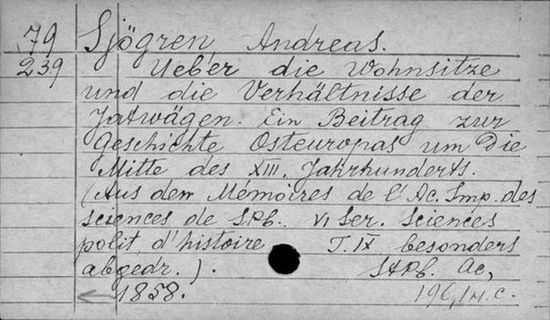 79
239
Sjögren, Andreas.
Ueber die Wohnsitze
und die Verhältnisse der
Jatwägen. Ein Beitrag zur
Geschichte Osteuropas um die
Mitte des XIII. Jahrhunderts.
(Aus den Mémoires de l'Ac. Imp. des
sciences de SPb. VI Ser. Sciences
polit. d'histoire T. IX besonders
abgedr.). StPb. Ac,
1858. 196/